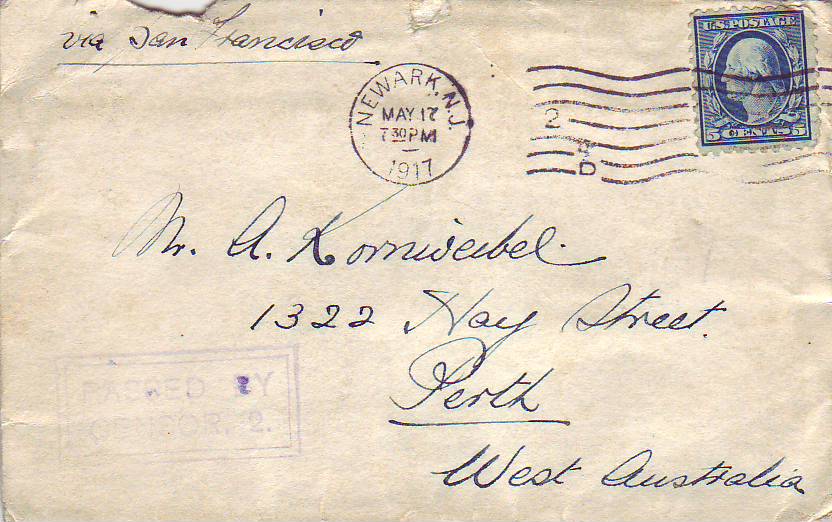 via San Francisco
NEWARK, N.J.
MAY 17
7 30 PM
1917
2
D
U.S. POSTAGE
5 CENTS 5
Mr. A. Kornweibel
1322 Hay Street.
Perth
West Australia
PASSED BY
CENSOR. 2.